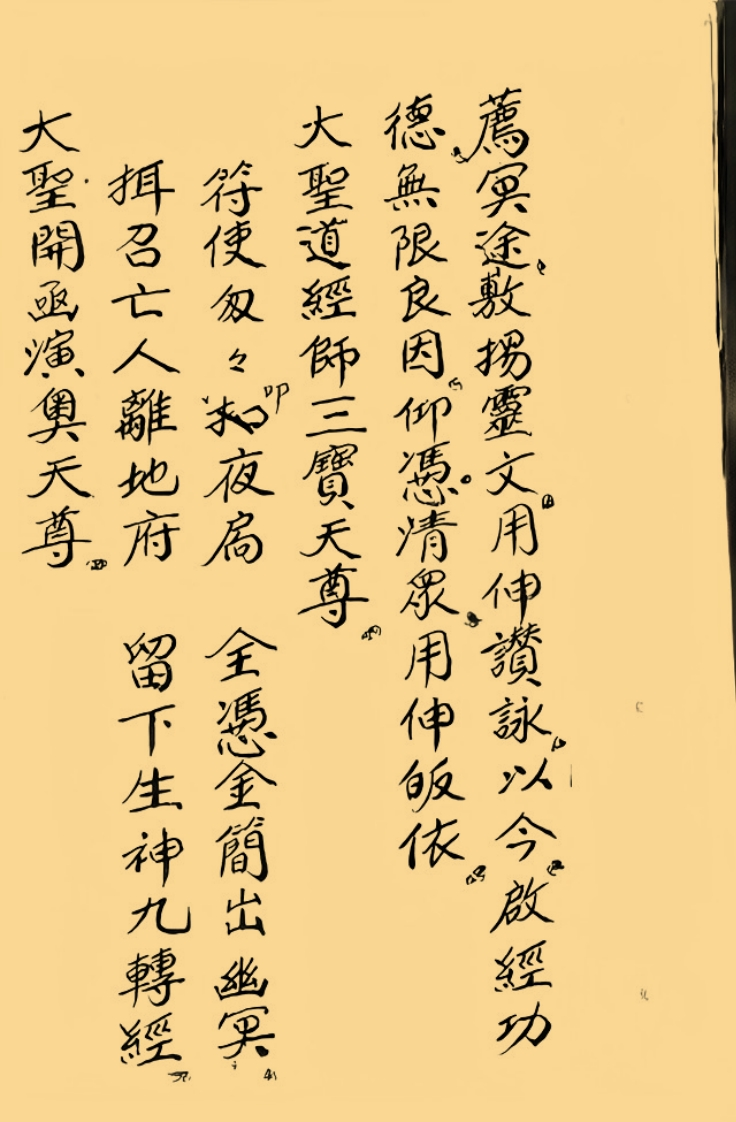 薦冥途敷揚靈文用伸讚詠以今啟經功
德無限良因仰憑清眾用伸皈依
大聖道經師三寶天尊
符使匆々扣夜扃 全憑金簡出幽冥
叩
揖召亡人離地府 留下生神九轉經
大聖開函演奧天尊